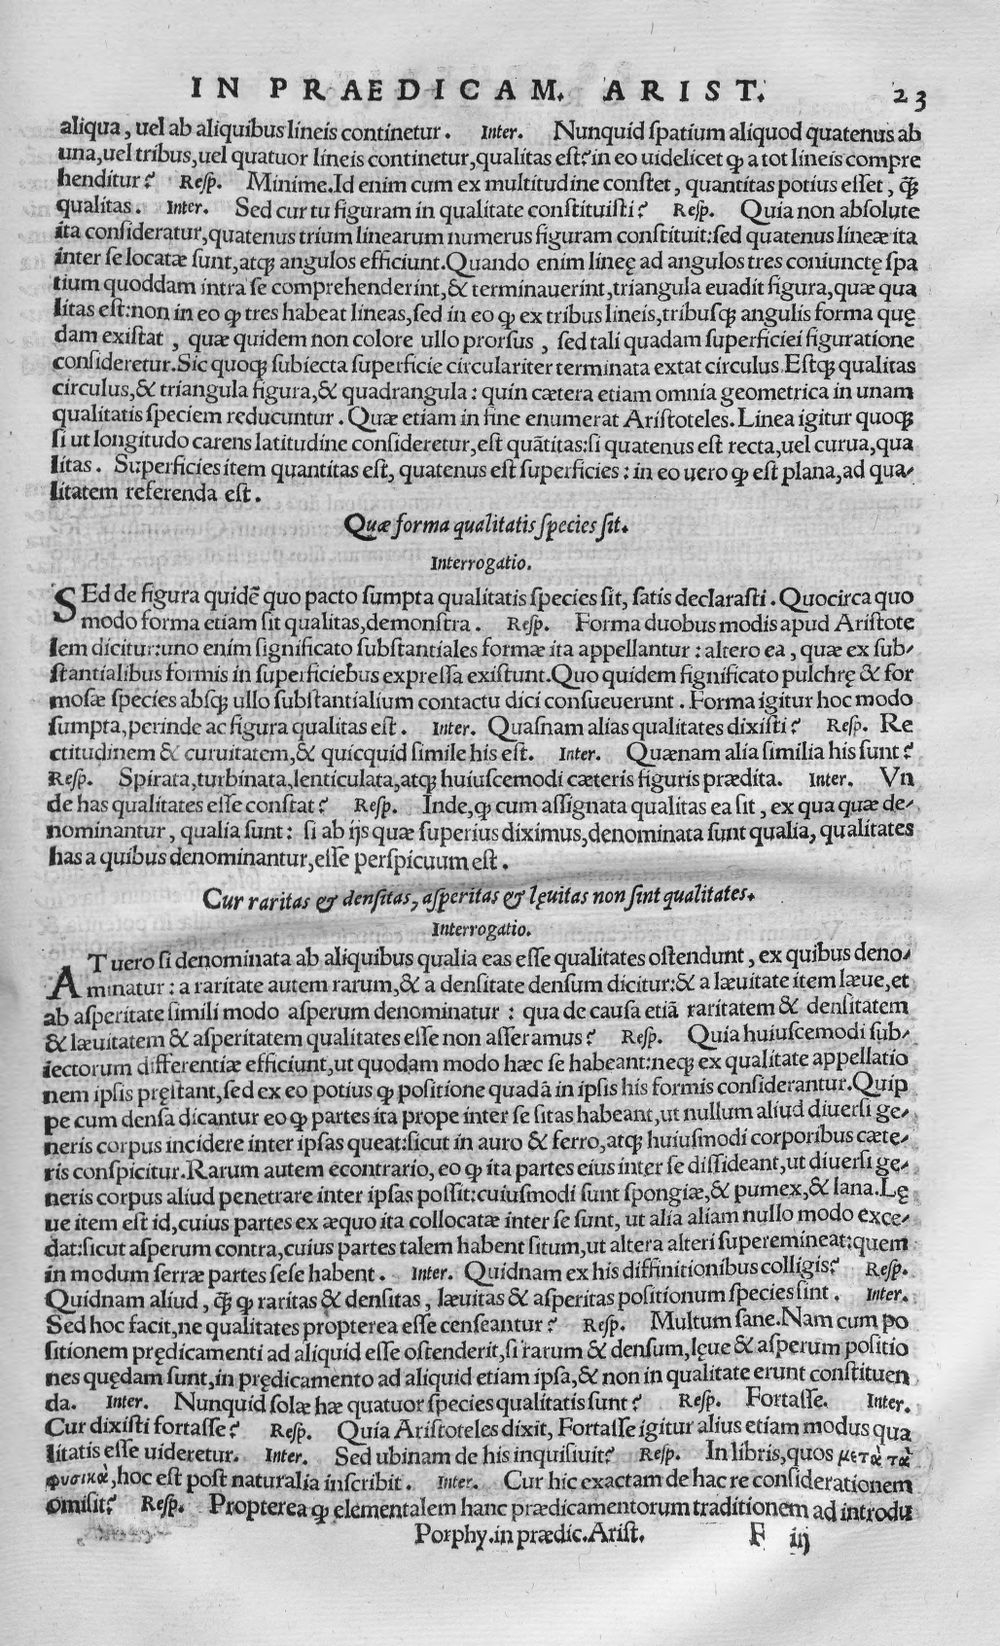 IN PRAEDICAM. ARIST. 23
aliqua, uel ab aliquibus lineis continetur. Inter. Nunquid ſpatium aliquod quatenus ab
una,uel tribus,uel quatuor lineis continetur,qualitas eſt? in eo uidelicet ꝙ a tot lineis compre
henditur? Reſp. Minime.Id enim cum ex multitudine conſtet, quantitas potius eſſet, q̃ꝫ
qualitas. Inter. Sed cur tu figuram in qualitate conſtituiſti? Reſp. Quia non abſolute
ita conſideratur,quatenus trium linearum numerus figuram conſtituit:ſed quatenus lineæ ita
inter ſe locatæ ſunt,atqꝫ angulos efficiunt.Quando enim lineę ad angulos tres coniunctę ſpa
tium quoddam intra ſe comprehenderint,& terminauerint,triangula euadit figura,quæ qua
litas eſt:non in eo ꝙ tres habeat lineas,ſed in eo ꝙ ex tribus lineis,tribuſqꝫ angulis forma quę
dam exiſtat, quæ quidem non colore ullo prorſus, ſed tali quadam ſuperficiei figuratione
conſideretur.Sic quoqꝫ ſubiecta ſuperficie circulariter terminata extat circulus.Eſtqꝫ qualitas
circulus,& triangula figura,& quadrangula: quin cætera etiam omnia geometrica in unam
qualitatis ſpeciem reducuntur. Quæ etiam in fine enumerat Ariſtoteles.Linea igitur quoqꝫ
ſi ut longitudo carens latitudine conſideretur,eſt quãtitas:ſi quatenus eſt recta,uel curua,qua
litas. Superficies item quantitas eſt, quatenus eſt ſuperficies: in eo uero ꝙ eſt plana,ad qua-
litatem referenda eſt.
Quæ forma qualitatis ſpecies ſit.
Interrogatio.
SEd de figura quidẽ quo pacto ſumpta qualitatis ſpecies ſit, ſatis declaraſti.Quocirca quo
modo forma etiam ſit qualitas,demonſtra. Reſp. Forma duobus modis apud Ariſtote
lem dicitur:uno enim ſignificato ſubſtantiales formæ ita appellantur: altero ea, quæ ex ſub-
ſtantialibus formis in ſuperficiebus expreſſa exiſtunt.Quo quidem ſignificato pulchrę & for
moſæ ſpecies abſqꝫ ullo ſubſtantialium contactu dici conſueuerunt. Forma igitur hoc modo
ſumpta,perinde ac figura qualitas eſt. Inter. Quaſnam alias qualitates dixiſti? Reſp. Re
ctitudinem & curuitatem,& quicquid ſimile his eſt. Inter. Quænam alia ſimilia his ſunt?
Reſp. Spirata,turbinata,lenticulata,atqꝫ huiuſcemodi cæteris figuris prædita. Inter. Vn
de has qualitates eſſe conſtat? Reſp. Inde,ꝙ cum aſſignata qualitas ea ſit, ex qua quæ de-
nominantur, qualia ſunt: ſi ab ijs quæ ſuperius diximus,denominata ſunt qualia, qualitates
has a quibus denominantur,eſſe perſpicuum eſt.
Cur raritas & denſitas, aſperitas & lęuitas non ſint qualitates.
Interrogatio.
AT uero ſi denominata ab aliquibus qualia eas eſſe qualitates oſtendunt, ex quibus deno-
minatur: a raritate autem rarum,& a denſitate denſum dicitur:& a læuitate item læue,et
ab aſperitate ſimili modo aſperum denominatur: qua de cauſa etiã raritatem & denſitatem
& læuitatem & aſperitatem qualitates eſſe non aſſeramus? Reſp. Quia huiuſcemodi ſub-
iectorum differentiæ efficiunt,ut quodam modo hæc ſe habeant:neqꝫ ex qualitate appellatio
nem ipſis pręſtant,ſed ex eo potius ꝙ poſitione quadã in ipſis his formis conſiderantur.Quip
pe cum denſa dicantur eo ꝙ partes ita prope inter ſe ſitas habeant,ut nullum aliud diuerſi ge-
neris corpus incidere inter ipſas queat:ſicut in auro & ferro,atqꝫ huiuſmodi corporibus cæte-
ris conſpicitur.Rarum autem econtrario, eo ꝙ ita partes eius inter ſe diſſideant,ut diuerſi ge-
neris corpus aliud penetrare inter ipſas poſſit:cuiuſmodi ſunt ſpongiæ,& pumex,& lana.Lę
ue item eſt id,cuius partes ex æquo ita collocatæ inter ſe ſunt, ut alia aliam nullo modo exce-
dat:ſicut aſperum contra,cuius partes talem habent ſitum,ut altera alteri ſuperemineat:quem
in modum ſerræ partes ſeſe habent. Inter. Quidnam ex his diffinitionibus colligis? Reſp.
Quidnam aliud, q̃ꝫ ꝙ raritas & denſitas, læuitas & aſperitas poſitionum ſpecies ſint. Inter.
Sed hoc facit,ne qualitates propterea eſſe cenſeantur? Reſp. Multum ſane.Nam cum po
ſitionem prędicamenti ad aliquid eſſe oſtenderit,ſi rarum & denſum,lęue & aſperum poſitio
nes quędam ſunt,in prędicamento ad aliquid etiam ipſa,& non in qualitate erunt conſtituen
da. Inter. Nunquid ſolæ hæ quatuor ſpecies qualitatis ſunt? Reſp. Fortaſſe. Inter.
Cur dixiſti fortaſſe? Reſp. Quia Ariſtoteles dixit, Fortaſſe igitur alius etiam modus qua
litatis eſſe uideretur. Inter. Sed ubinam de his inquiſiuit? Reſp. In libris,quos μετὰ τὰ
φυσικὰ,hoc eſt poſt naturalia inſcribit. Inter. Cur hic exactam de hac re conſiderationem
omiſit? Reſp. Propterea ꝙ elementalem hanc prædicamentorum traditionem ad introdu
Porphy.in prædic.Ariſt. F iij